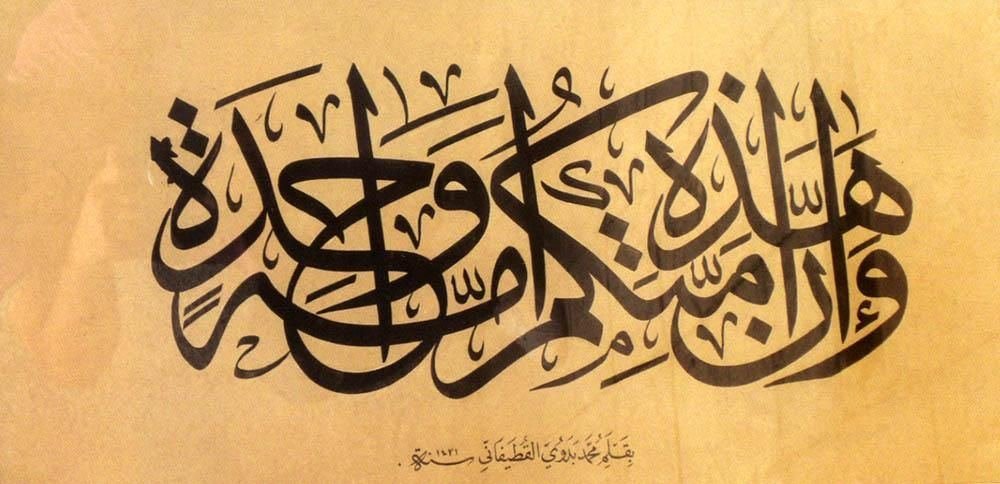 وَإِنَّ هَٰذِهِ أُمَّتُكُمْ أُمَّةً وَٰحِدَةً
بقلم محمد بدوي القطيفاني سنة ١٤٣١